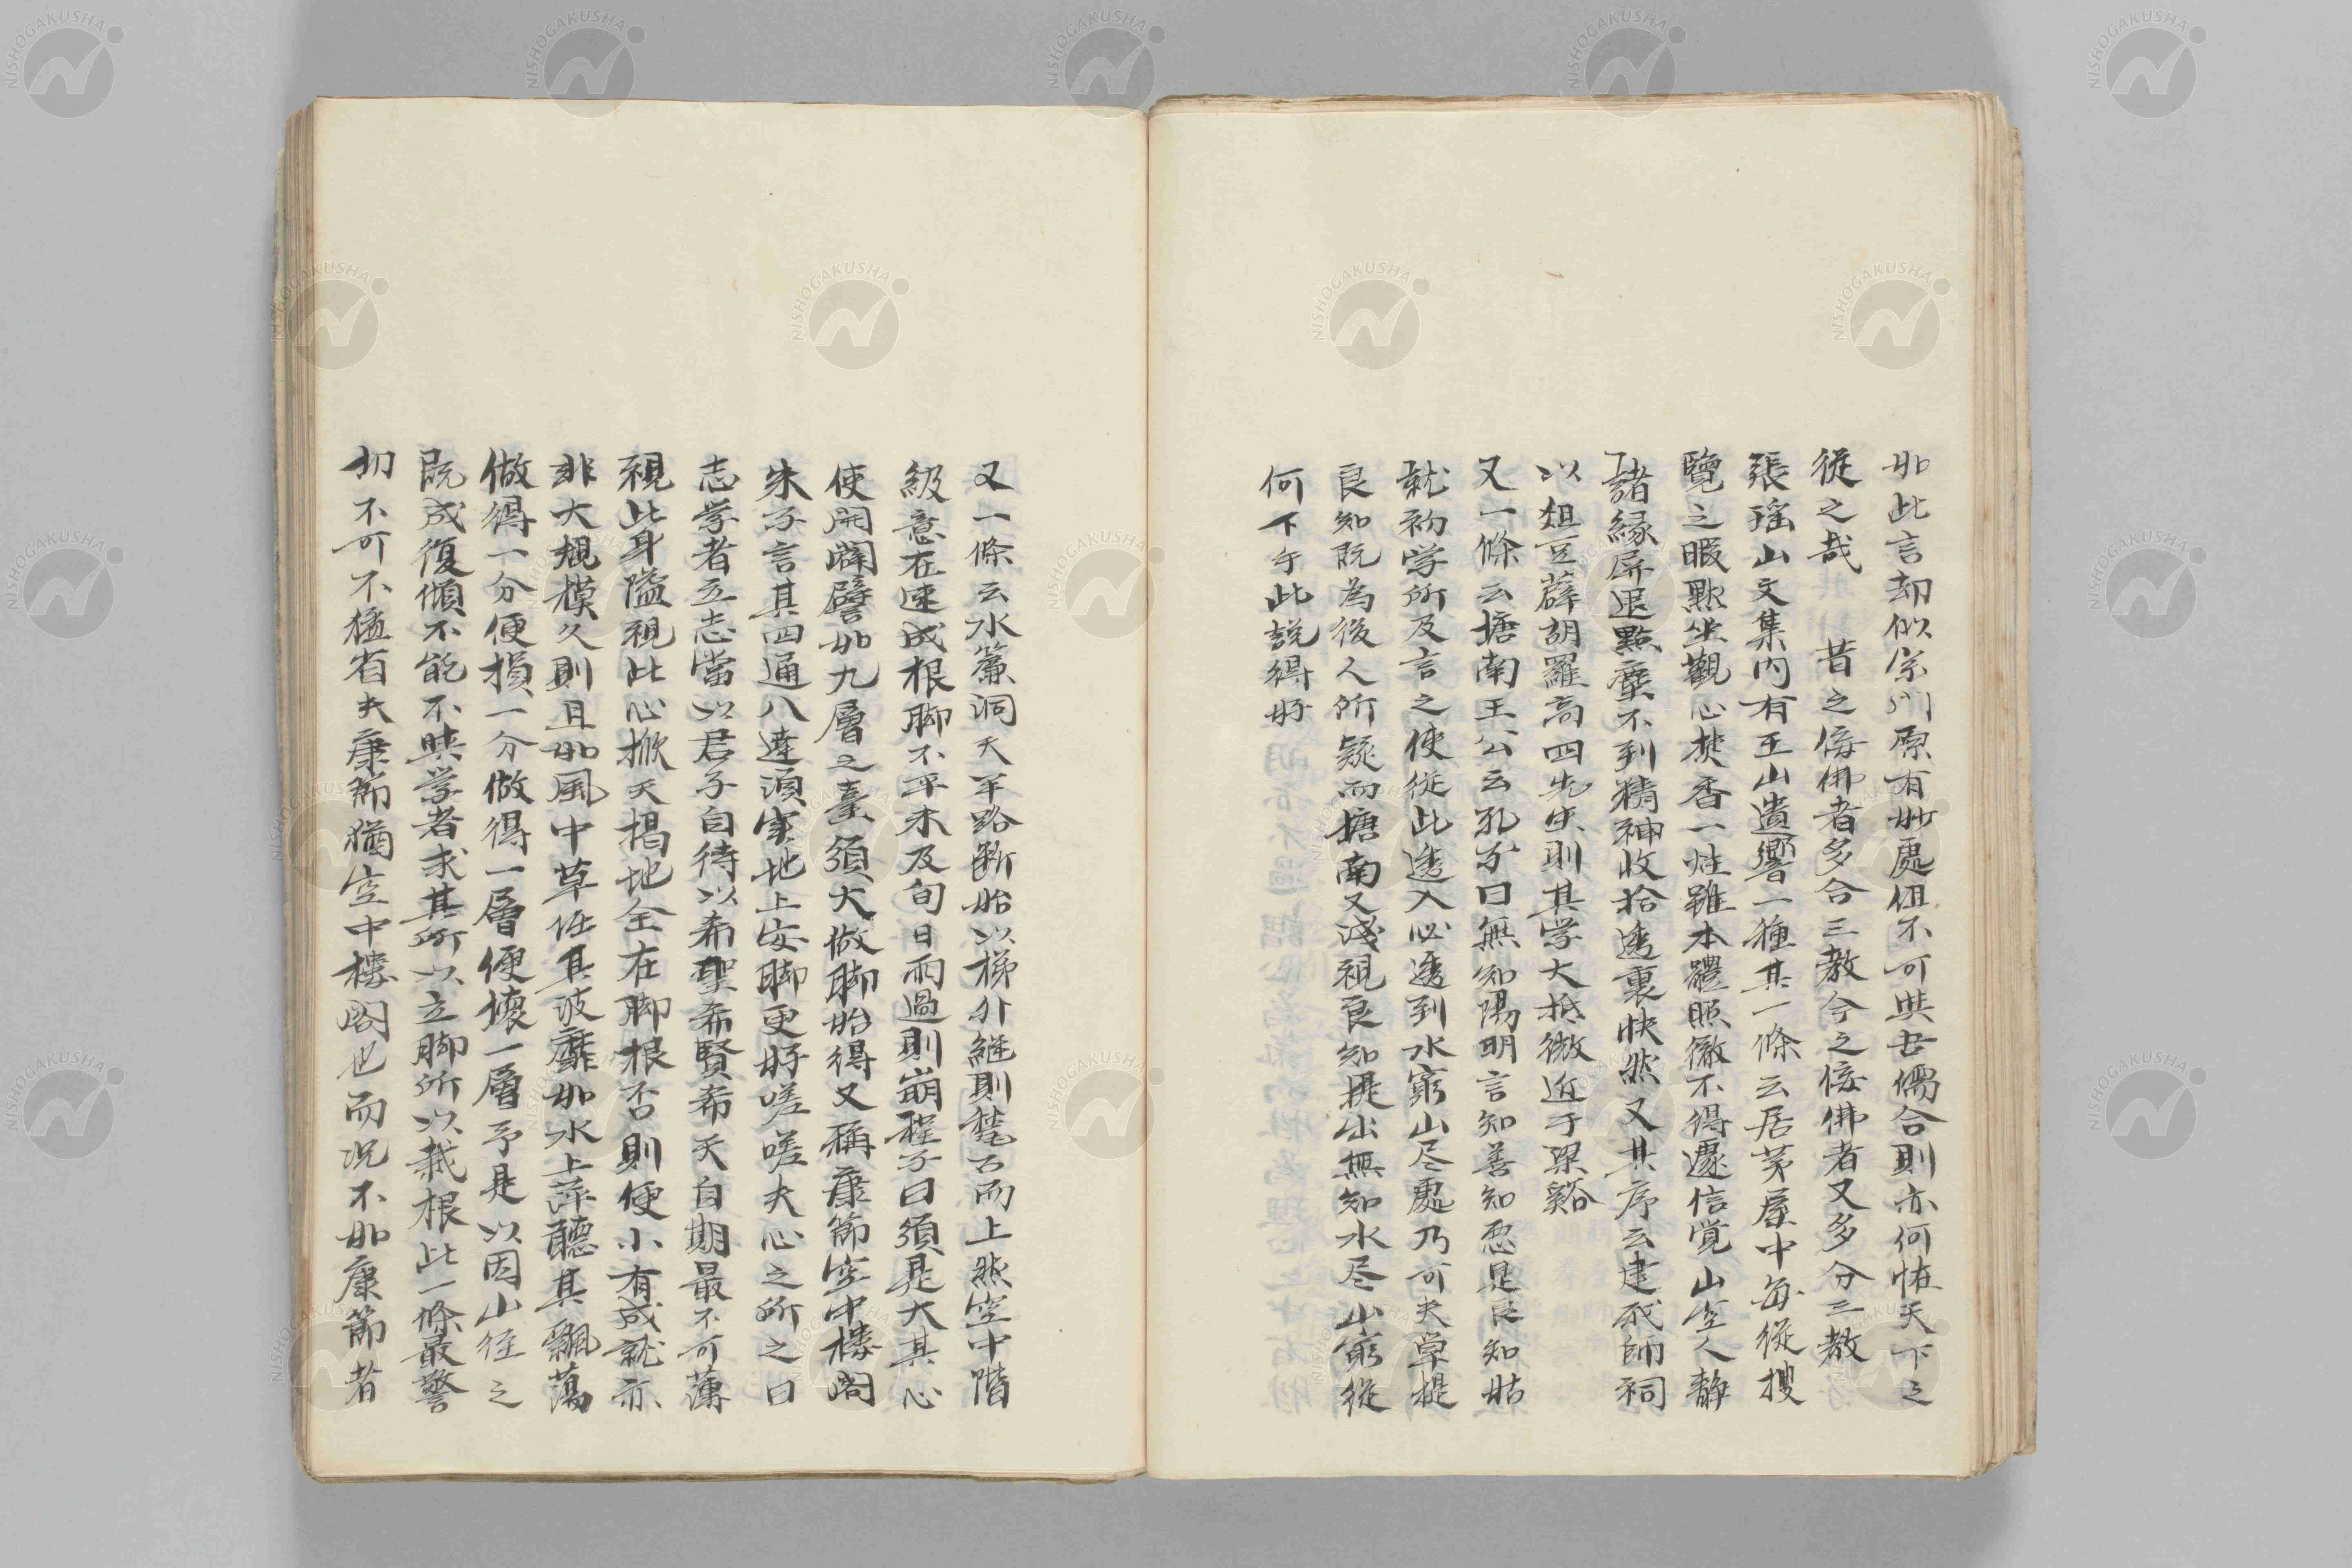 如此言却似宗門原有妙處但不可與世儒合則亦何怪天下之
從之哉　昔之佞佛者多合三教今之佞佛者又多分三教
張瑶山文集内有玉山遺響一種其一條云居茅屋中每從搜
覽之暇默坐觀心焚香一炷雖本體照徹不得遽信覚山空人静
諸緣屏退點塵不到精神收拾透裏快然又其序云建我師祠
以俎豆薛胡羅高四先生則其学大抵微近于梁谿
又一條云塘南王公云孔子曰無知陽明言知善知悪是良知姑
就初学所及言之使從此透入必透到水窮山尽處乃可夫草提
良知既為後人所疑而塘南又淺視良知提出無知水尽山窮從
何下手此説得好
又一條云水簾洞天半路断始以梯升継則甃石而上然空中階
級意在速成根脚不平未及旬日雨過則崩程子曰須是大其心
使開闊譬如九層之臺須大做脚始得又稱康節空中樓閣
朱子言其四通八達須実地上安脚更好嗟嗟夫心之所之曰
志学者立志當以君子自待以希聖希賢希天自期最不可薄
視此身隘視此心掀天揭地全在脚根否則便小有成就亦
非大規模久則且如風中草任其波靡如水上萍聽其飄蕩
做得一分便損一分做得一層便壊一層予是以因山徑之
既成復傾不能不與学者求其所以立脚所以栽根此一條最警
切不可不猛省夫康節猶空中樓閣也而况不如康節者
NISHOGAKUSHA